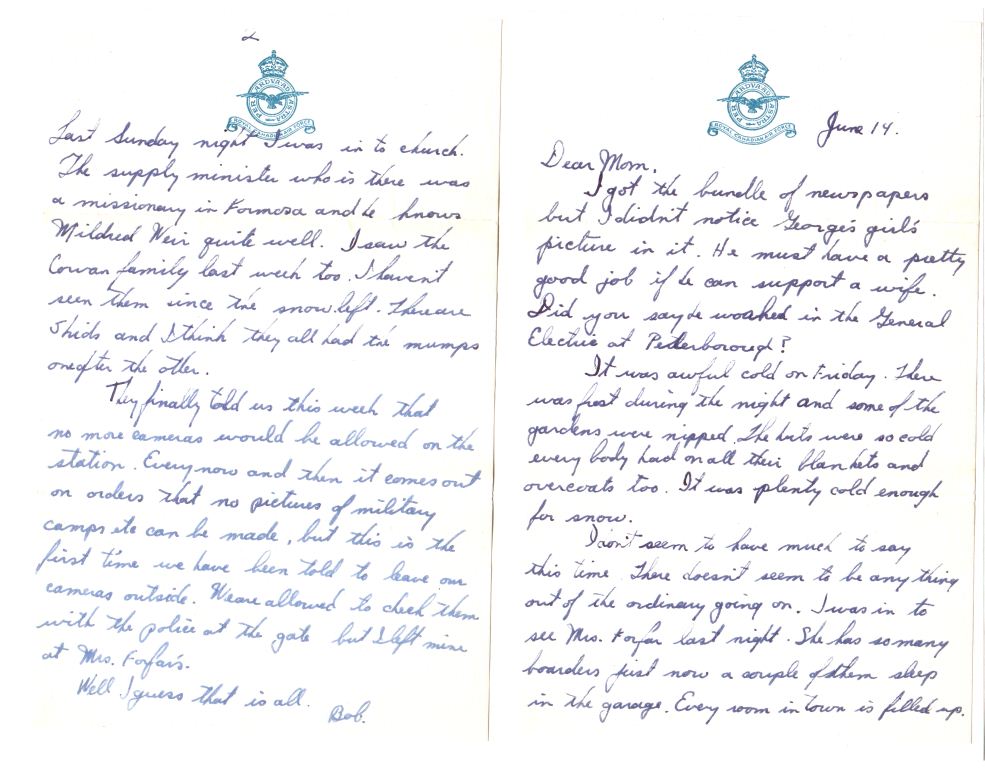 PER ARDUA AD ASTRA
ROYAL CANADIAN AIR FORCE
June 14.
Dear Mom,
I got the bundle of newspapers
but I didn't notice George's girl's
picture in it. He must have a pretty
good job if he can support a wife.
Did you say he worked in the General
Electric at Peterborough?
It was awful cold on Friday. There
was frost during the night and some of the
gardens were nipped. The huts were so cold
every body had on all their blankets and
overcoats too. It was plenty cold enough
for snow.
I don't seem to have much to say
this time. There doesn't seem to be any thing
out of the ordinary going on. I was in to
see Mrs. Forfar last night. She has so many
boarders just now a couple of them sleep
in the garage. Every room in town is filled up.
2
PER ARDUA AD ASTRA
ROYAL CANADIAN AIR FORCE
Last Sunday night I was in to church.
The supply minister who is there was
a missionary in Formosa and he knows
Mildred Weir quite well. I saw the
Cowan family last week too. I haven't
seen them since the snow left. There are
5 kids and I think they all had the mumps
one after the other.
They finally told us this week that
no more cameras would be allowed on the
station. Every now and then it comes out
on orders that no pictures of military
camps etc can be made, but this is the
first time we have been told to leave our
cameras outside. We are allowed to check them
with the police at the gate but I left mine
at Mrs. Forfar's.
Well I guess that is all.
Bob.